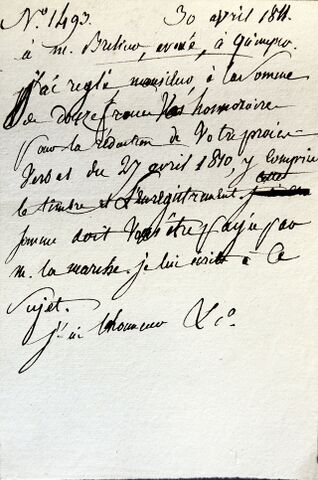 N.° 1493. 30 avril 1811.
à m. Brelivo, avoué, à Quimper.
J'ai reglé, monsieur à la Somme
de douze francs Vos honoraires
pour la rédaction de Votre procès
Verbal du 27 avril 1810, y Comprise
le timbre et l'Enregistrement.
somme doit Vous être payée par
m. la marche. je lui écris à Ce
Sujet.
j'ai l'honneur &c.